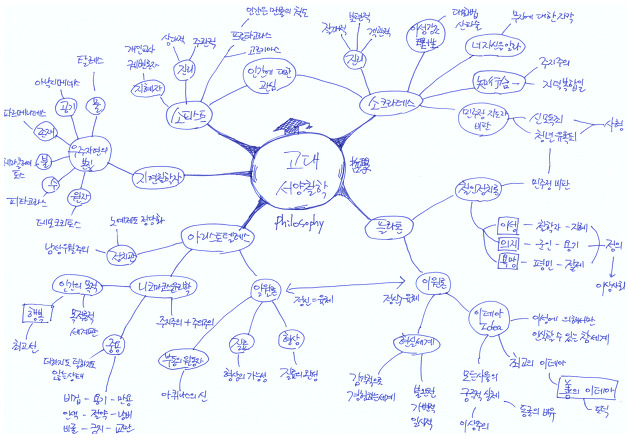 고대
서양철학
Philosophy
자연철학자
우주자연의
본질
물
탈레스
공기
아낙시메네스
존재
파르메니데스
불
헤라클레이
토스
수
피타고라스
원자
데모크리토스
소피스트
지혜자
개인교사
진리
상대적
주관적
인간은 만물의 척도
프로타고라스
고르기아스
인간에 대한
관심
소크라테스
진리
절대적
보편적
객관적
이성강조
대화법
산파술
너 자신을 알라
무지에 대한 자각
주지주의
지덕복합일
민주정 지도자
비판
신모독죄
청년유혹죄
사형
플라톤
민주정 비판
이성 - 철학자 - 지혜
의지 - 군인 - 용기
욕망 - 평민 - 절제
정의
이상사회
이원론
정신-육체
현실세계
감각적으로
경험하는세계
불완전
가변적
일시적
이데아
Idea
이성에 의해서만
인식할 수 있는 참세계
최고의 이데아
善의 이데아
모든사물의
궁극적 실재
이상주의
동굴의 비유
아리스토텔레스
정치관
노예제도 정당화
남성우월주의
니코마코스윤리학
주지주의 + 주의주의
인간의 목적
행복
최고선
목적론적
세계관
중용
비겁 - 용기 - 만용
인색 - 절약 - 낭비
비굴 - 긍지 - 교만
일원론
정신=육체
부동의 원동자
아퀴나스의 신
질료
형상의 가능성
형상
질료의 완성